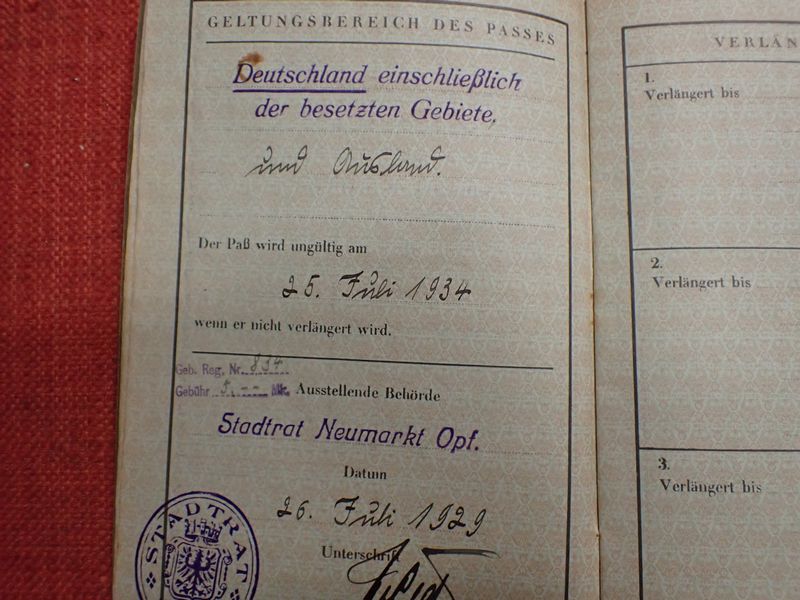 GELTUNGSBEREICH DES PASSES
Deutschland einschließlich
der besetzten Gebiete.
und Ausland.
Der Paß wird ungültig am
25. Juli 1934
wenn er nicht verlängert wird.
Geb. Reg. Nr. 834
Gebühr 5.-- Mk.
Ausstellende Behörde
Stadtrat Neumarkt Opf.
Datum
26. Juli 1929
Unterschrift
STADTRAT
VERLÄN
1.
Verlängert bis
2.
Verlängert bis
3.
Verlängert bis